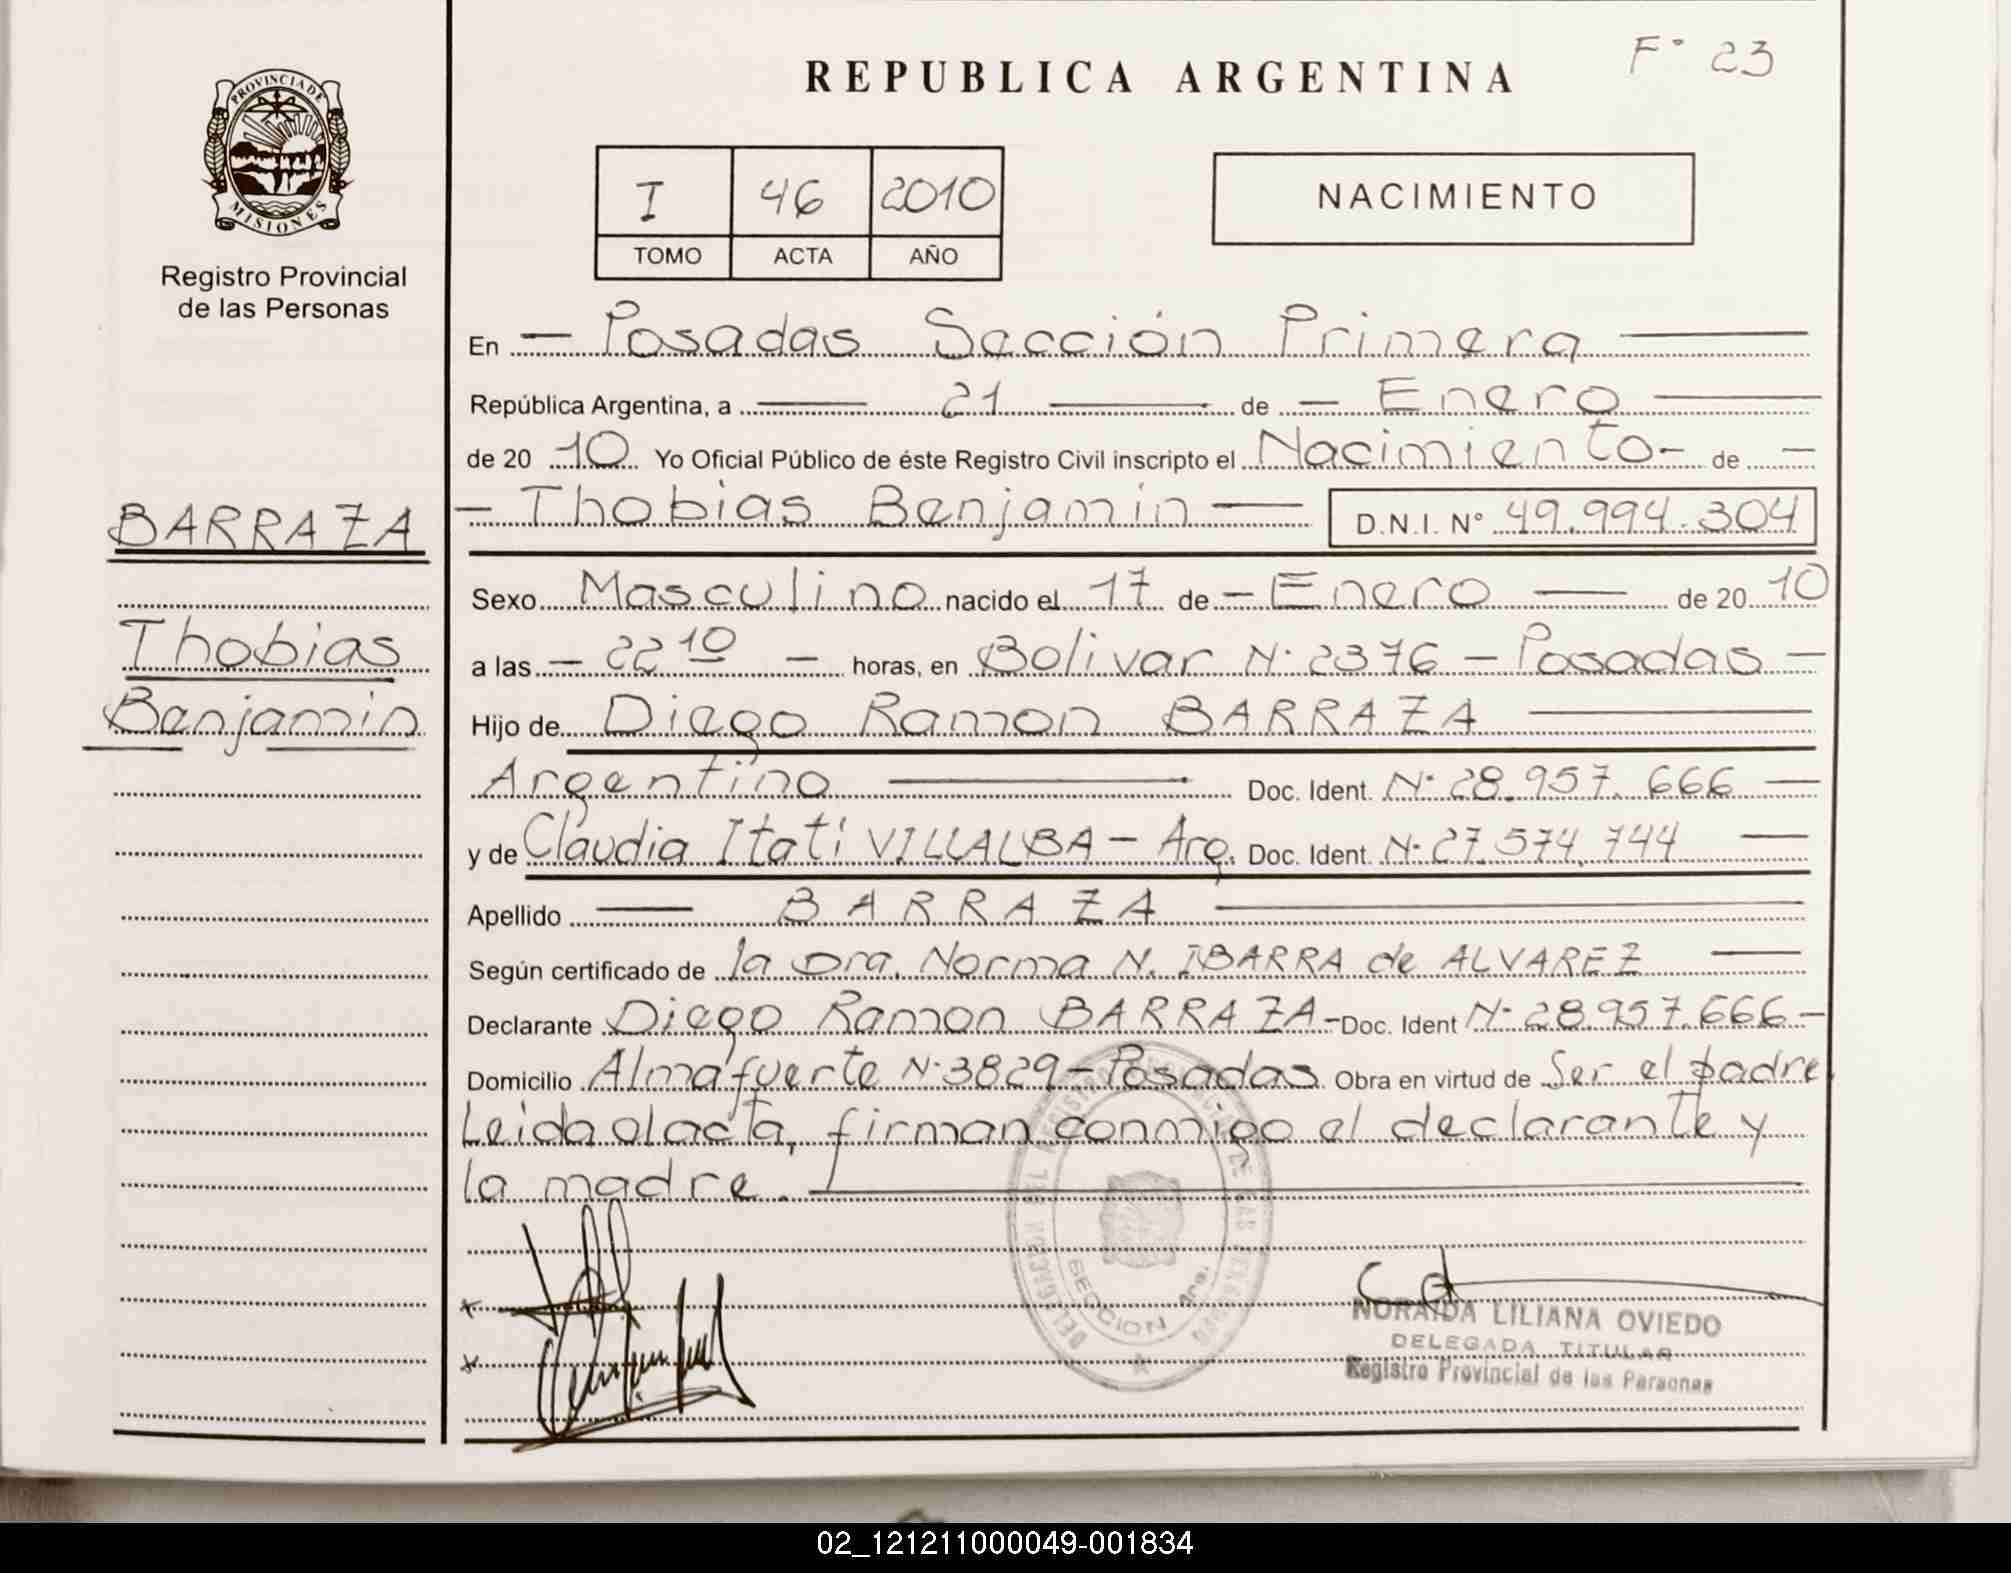 F° 23
REPUBLICA ARGENTINA
PROVINCIA DE
MISIONES
Registro Provincial
de las Personas
I 46 2010
TOMO ACTA AÑO
NACIMIENTO
En — Posadas Sección Primera —
República Argentina, a — 21 — de — Enero —
de 20 10 Yo Oficial Público de éste Registro Civil inscripto el Nacimiento - de —
— Thobias Benjamin — D.N.I. N° 49.994.304
BARRAZA
Thobias
Benjamin
Sexo Masculino nacido el 17 de — Enero — de 20 10
a las — 22 10 — horas, en Bolivar N° 2376 — Posadas —
Hijo de Diego Ramon BARRAZA —
Argentino — Doc. Ident. N° 28.957.666 —
y de Claudia Itati VILLALBA — Arg. Doc. Ident. N° 27.574.744 —
Apellido — BARRAZA —
Según certificado de la Dra. Norma N. IBARRA de ALVAREZ —
Declarante Diego Ramon BARRAZA - Doc. Ident N° 28.957.666 —
Domicilio Almafuerte N° 3829 — Posadas Obra en virtud de Ser el padre.
Leida el acta, firman conmigo el declarante y
la madre. —
DELEGACION DEL REGISTRO PROVINCIAL DE LAS PERSONAS
SECCION 1ra.
NORAIDA LILIANA OVIEDO
DELEGADA TITULAR
Registro Provincial de las Personas
02_121211000049-001834